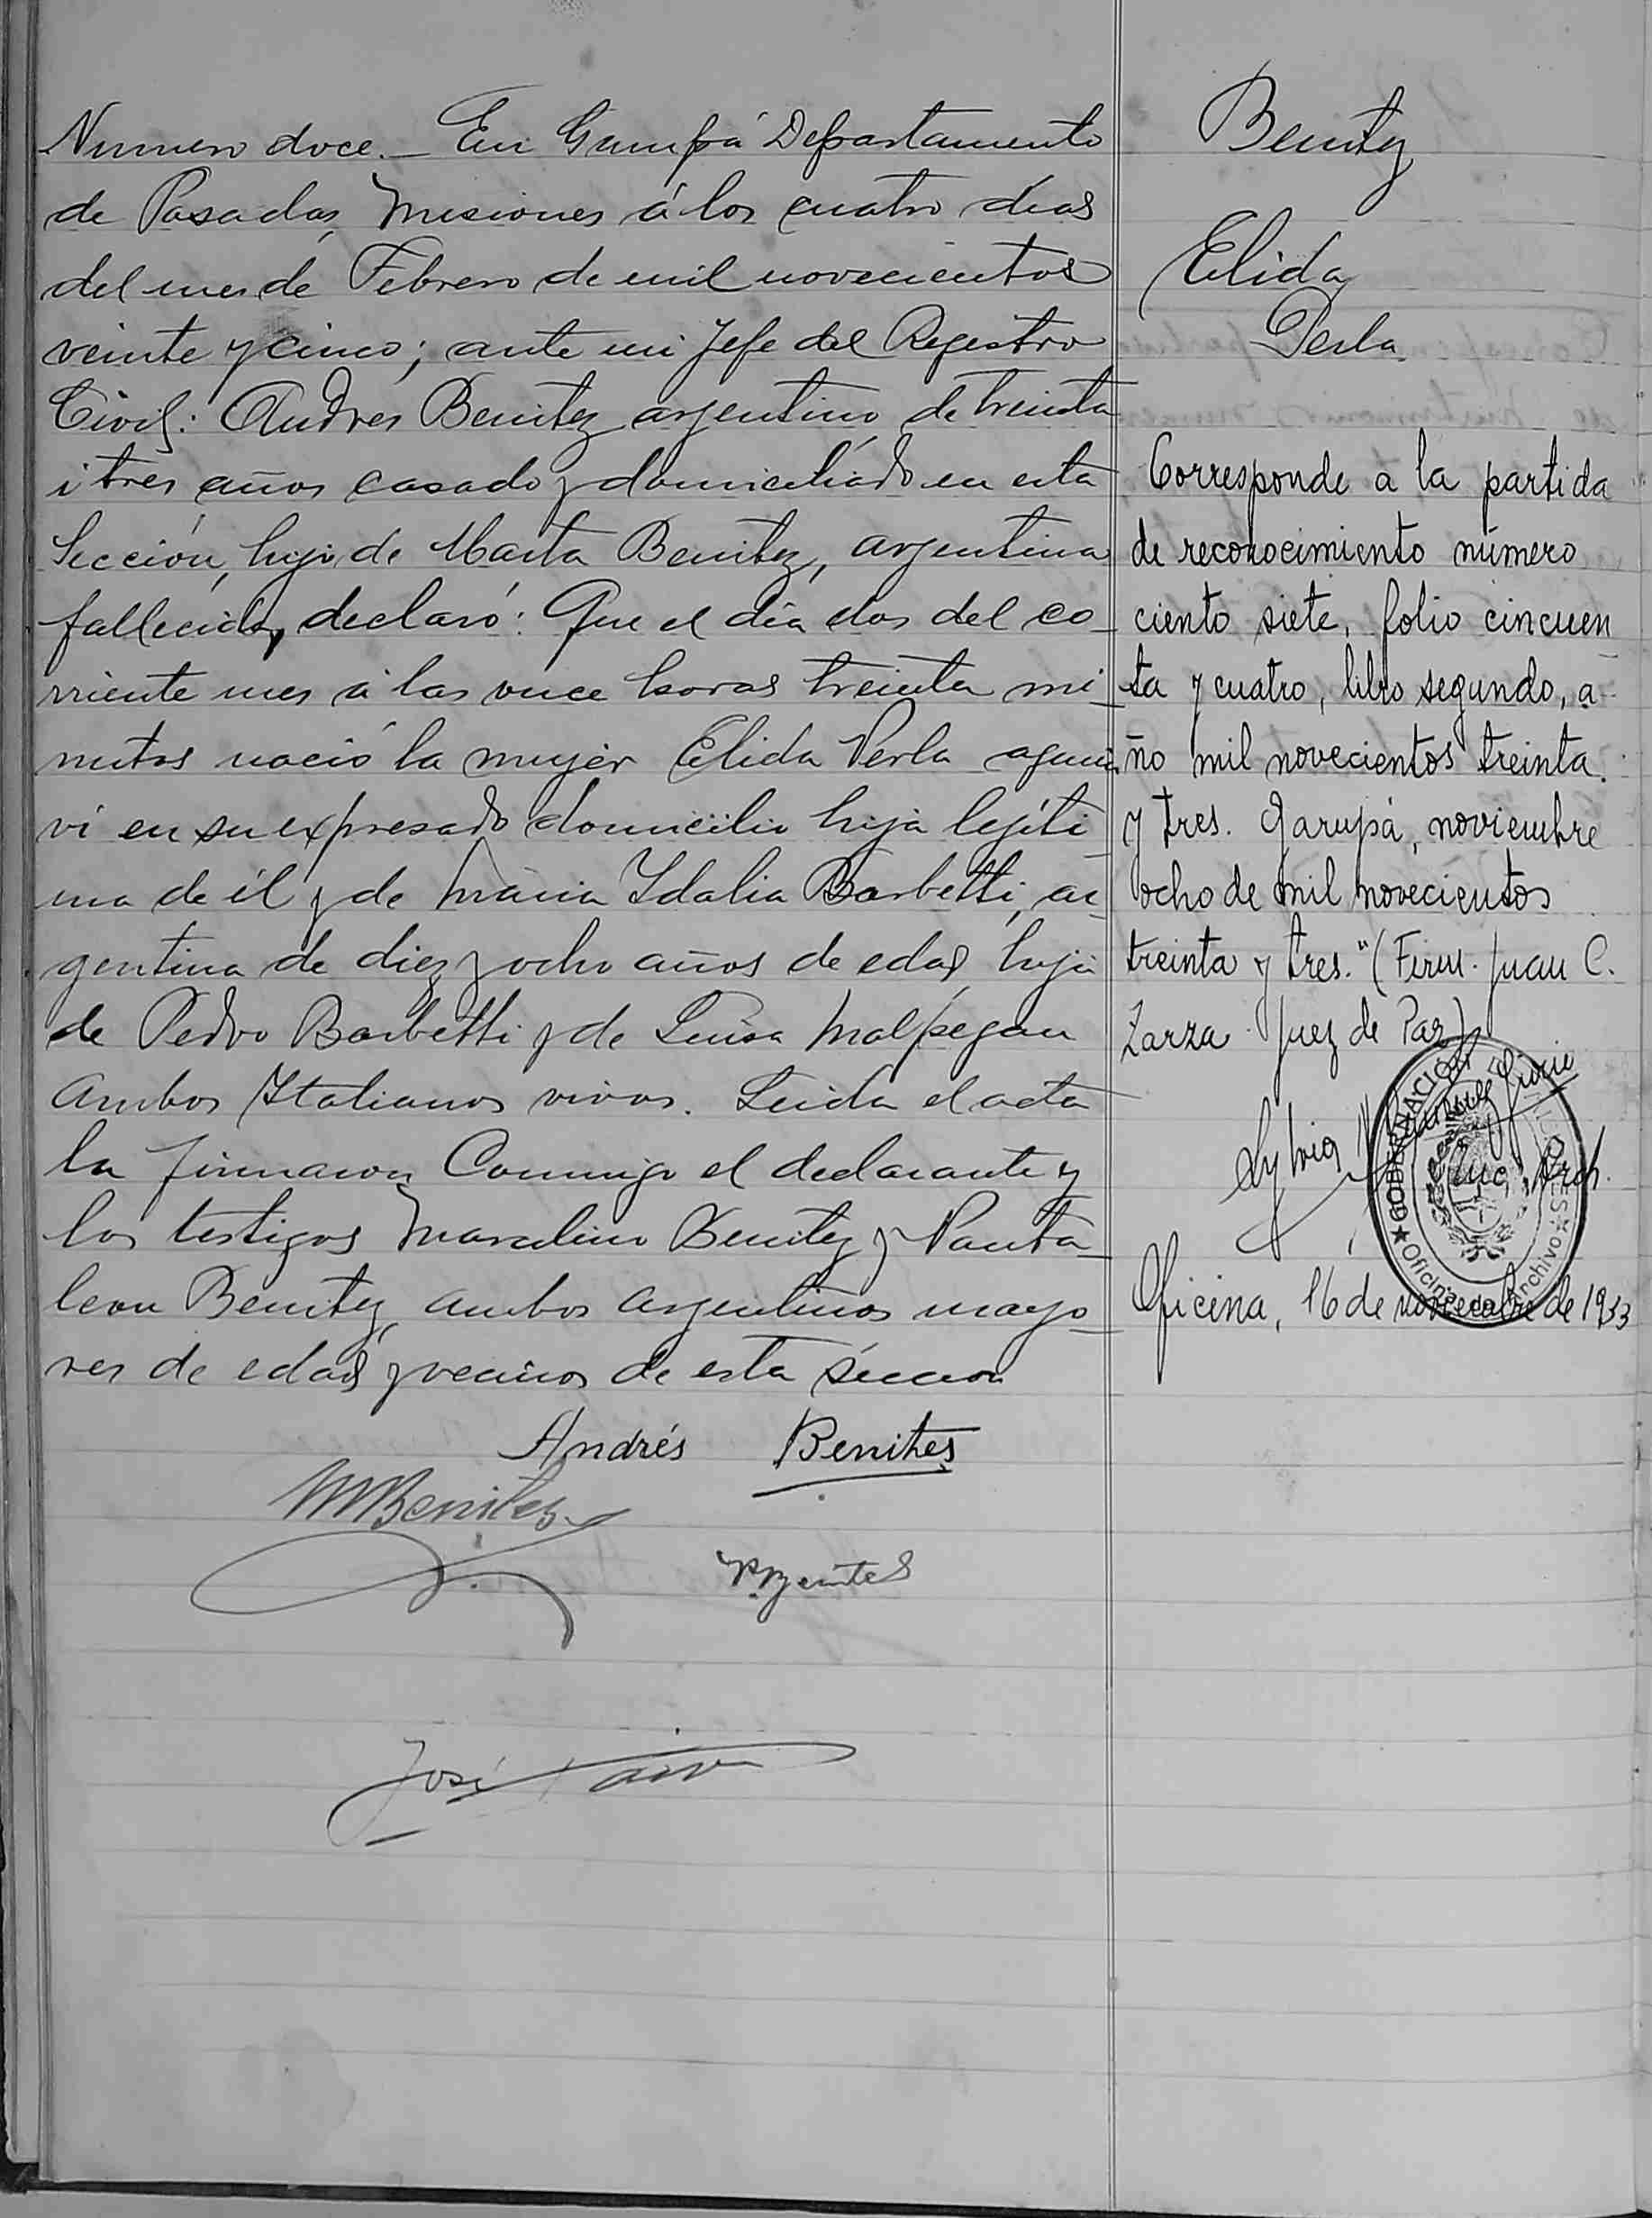 Numero doce._ En Garupá Departamento
de Posadas, Misiones á los cuatro dias
del mes de Febrero de mil novecientos
veinte y cinco; ante mi Jefe del Registro
Civil: Andres Benitez argentino, de treinta
i tres años casado y domiciliado en esta
Sección, hijo de Marta Benitez, argentina
fallecida, declaró: Que el dia dos del co_
rriente mes á las once horas treinta mi_
nutos nació la mujer Elida Perla aquien
vi en su expresado domicilio hija lejíti_
ma de él y de Maria Idalia Barbetti, ar_
gentina de diez y ocho años de edad, hija
de Pedro Barbetti y de Luisa Malpegan
Ambos Italianos vivos. Leida el acta
la firmaron Conmigo el declarante y
los testigos Marcelino Benitez y Panta_
leon Benitez, ambos argentinos mayo_
res de edad y vecinos de esta sección
Andrés Benites
MBenites
PBenites
José
Benitez
Elida
Perla
Corresponde a la partida
de reconocimiento número
ciento siete, folio cincuen
ta y cuatro, libro segundo, a-
ño mil novecientos treinta
y tres. Garupá, noviembre
ocho de mil novecientos
treinta y tres." (Firm. Juan C.
Zarza Juez de Paz)
Sylvia
Enc. Arch.
GOBERNACION
Oficina de Archivo
Oficina, 16 de noviembre de 1933